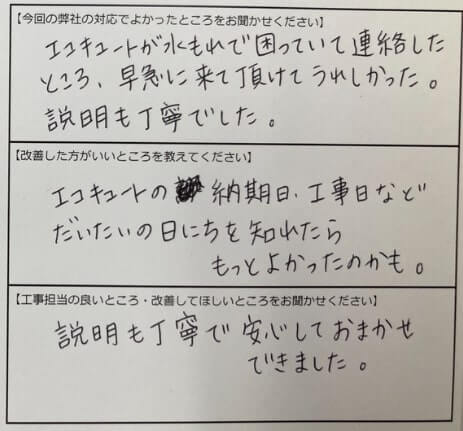 【今回の弊社の対応でよかったところをお聞かせください】
エコキュートが水もれで困っていて連絡した
ところ、早急に来て頂けてうれしかった。
説明も丁寧でした。
【改善した方がいいところを教えてください】
エコキュートの 納期日、工事日など
だいたいの日にちを知れたら
もっとよかったのかも。
【工事担当の良いところ・改善してほしいところをお聞かせください】
説明も丁寧で安心しておまかせ
できました。